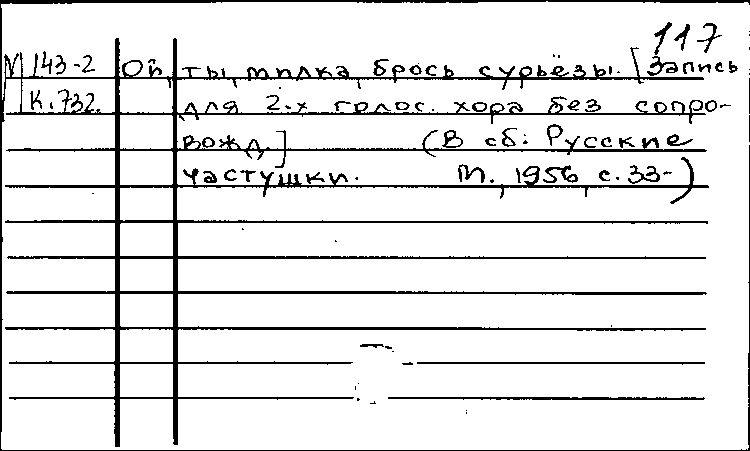 117
М 143-2 Ой, ты, милка, брось сурьёзы. [Запись
К.732. для 2-х голос. хора без сопро-
вожд.] (В сб: Русские
частушки. М., 1956, с. 33-)